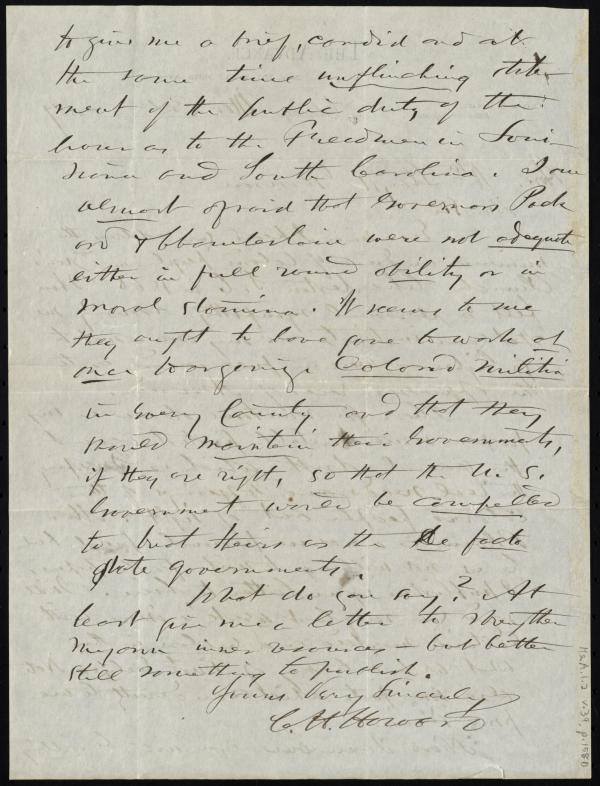 to give me a brief, candid and at
the same time unflinching state-
ment of the public duty of the
hour as to the Freedmen in Loui-
siana and South Carolina. I am
almost afraid that Governors Pack-
ard & Chamberlain were not adequate
either in full round ability or in
moral stamina. It seems to me
they ought to have gone to work at
once to organize Colored militia
in every County and that they
should maintain their Governments,
if they are right, so that the U. S.
Government would be compelled
to trust theirs as the de facto
state governments.
What do you say? At
least give me a letter to strengthen
my own inner resources - but better
still something to publish.
Yours Very Sincerely
C. H. Howard
Ms.A.1.2 v.39, p.158B